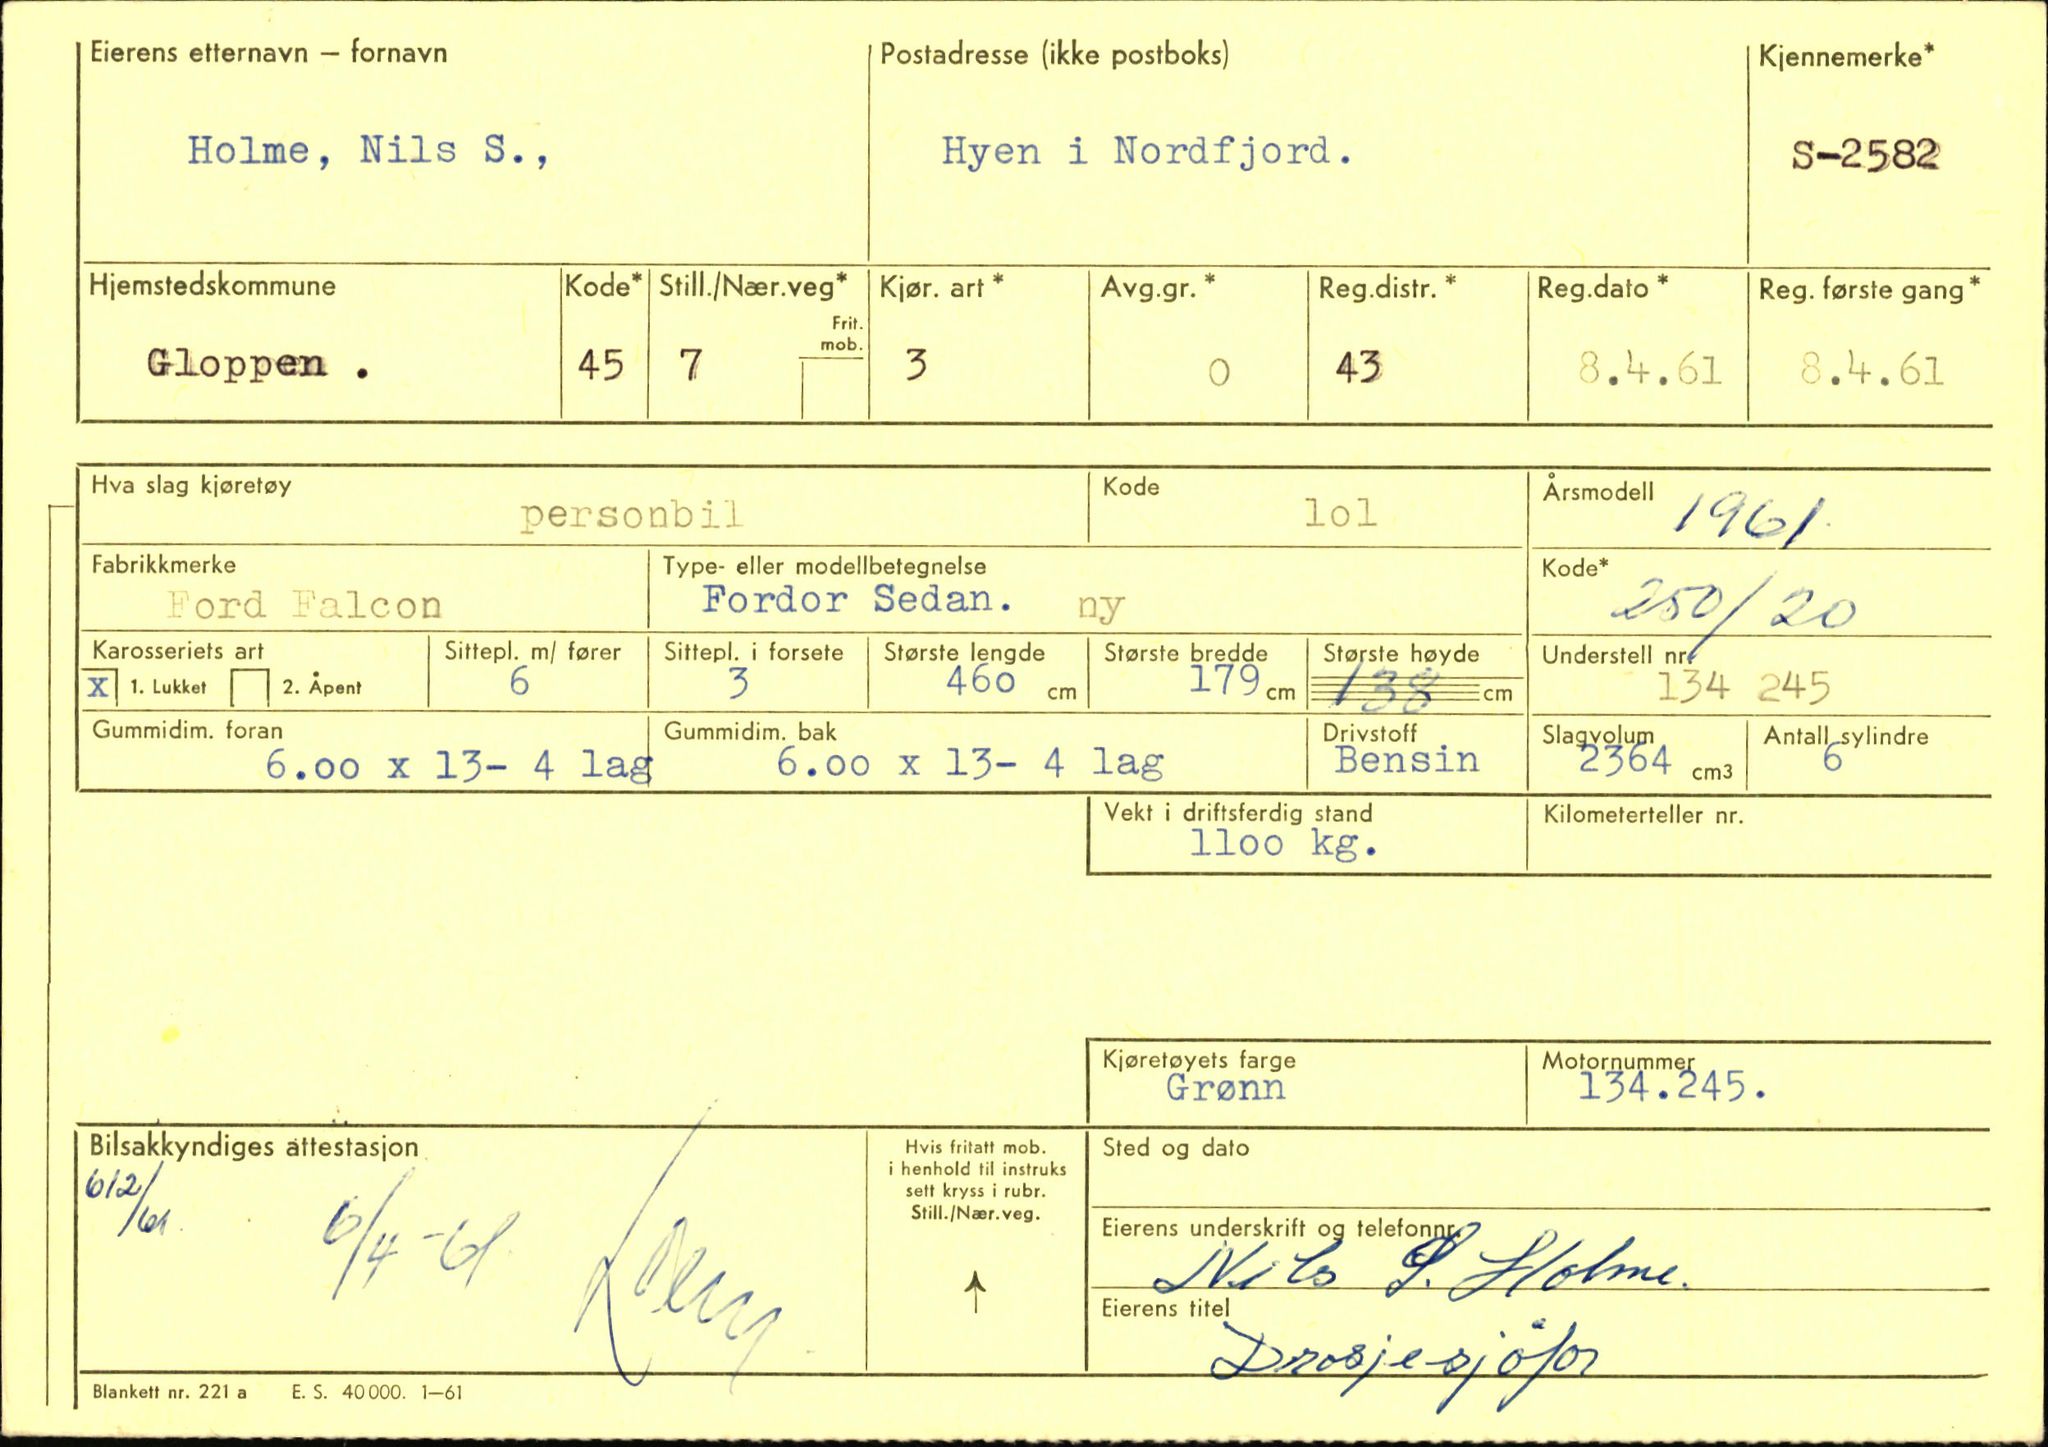 Eierens etternavn – fornavn Postadresse (ikke postboks) Kjennemerke*
Holme, Nils S., Hyen i Nordfjord. S-2582
Hjemstedskommune Kode* Still./Nær.veg* Kjør. art* Avg.gr.* Reg.distr.* Reg.dato* Reg. første gang*
Frit. mob.
Gloppen . 45 7 3 0 43 8.4.61 8.4.61
Hva slag kjøretøy Kode Årsmodell
personbil lol 1961
Fabrikkmerke Type- eller modellbetegnelse Kode*
Ford Falcon Fordor Sedan. ny 250/20
Karosseriets art Sittepl. m/ fører Sittepl. i forsete Største lengde Største bredde Største høyde Understell nr.
x 1. Lukket 2. Åpent 6 3 460 cm 179 cm 138 cm 134 245
Gummidim. foran Gummidim. bak Drivstoff Slagvolum Antall sylindre
6.00 x 13- 4 lag 6.00 x 13- 4 lag Bensin 2364 cm3 6
Vekt i driftsferdig stand Kilometerteller nr.
1100 kg.
Kjøretøyets farge Motornummer
Grønn 134.245.
Bilsakkyndiges attestasjon Hvis fritatt mob. Sted og dato
i henhold til instruks
sett kryss i rubr.
Still./Nær.veg.
612/61 6/4-61
Eierens underskrift og telefonnr.
Nils S. Holme.
Eierens titel
Drosjesjåfør
Blankett nr. 221 a E. S. 40 000. 1–61